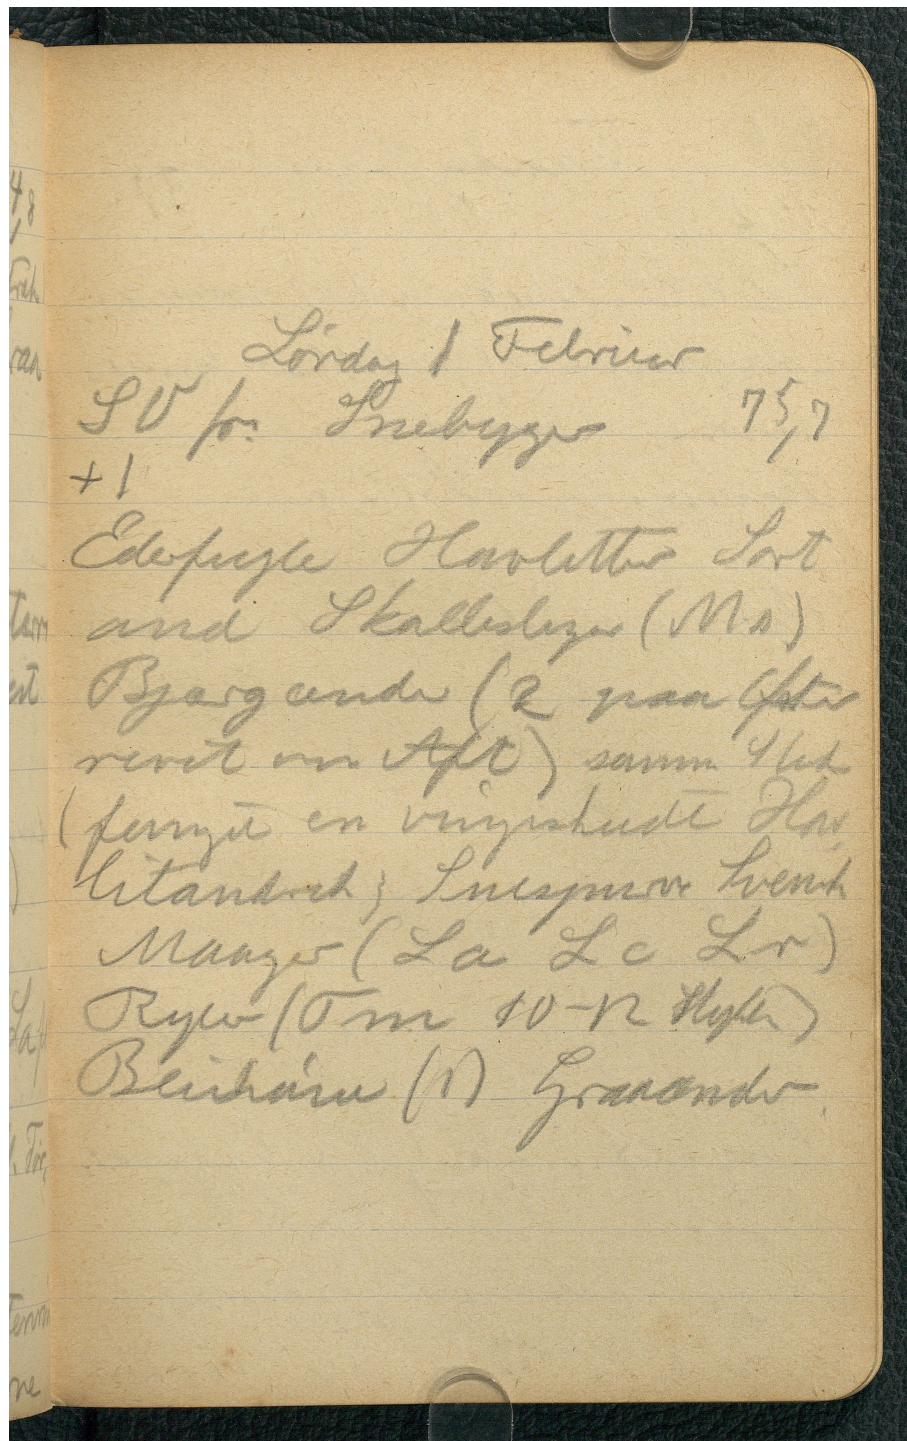 Lørdag 1 Februar
SV fr. Snebyger 75,7
+1
Ederfugle Havlitter Sort
and Skallesluger (Ms)
Bjærgænder (2 paa Øster
revet om Aft) samm Sted
(fanget en vingeskudt Hav
litandrik; Snespurve Svensk
Maager (La Lc Lr)
Ryler (Tm 10-12 Stykker)
Blishøne (1) Graaænder.